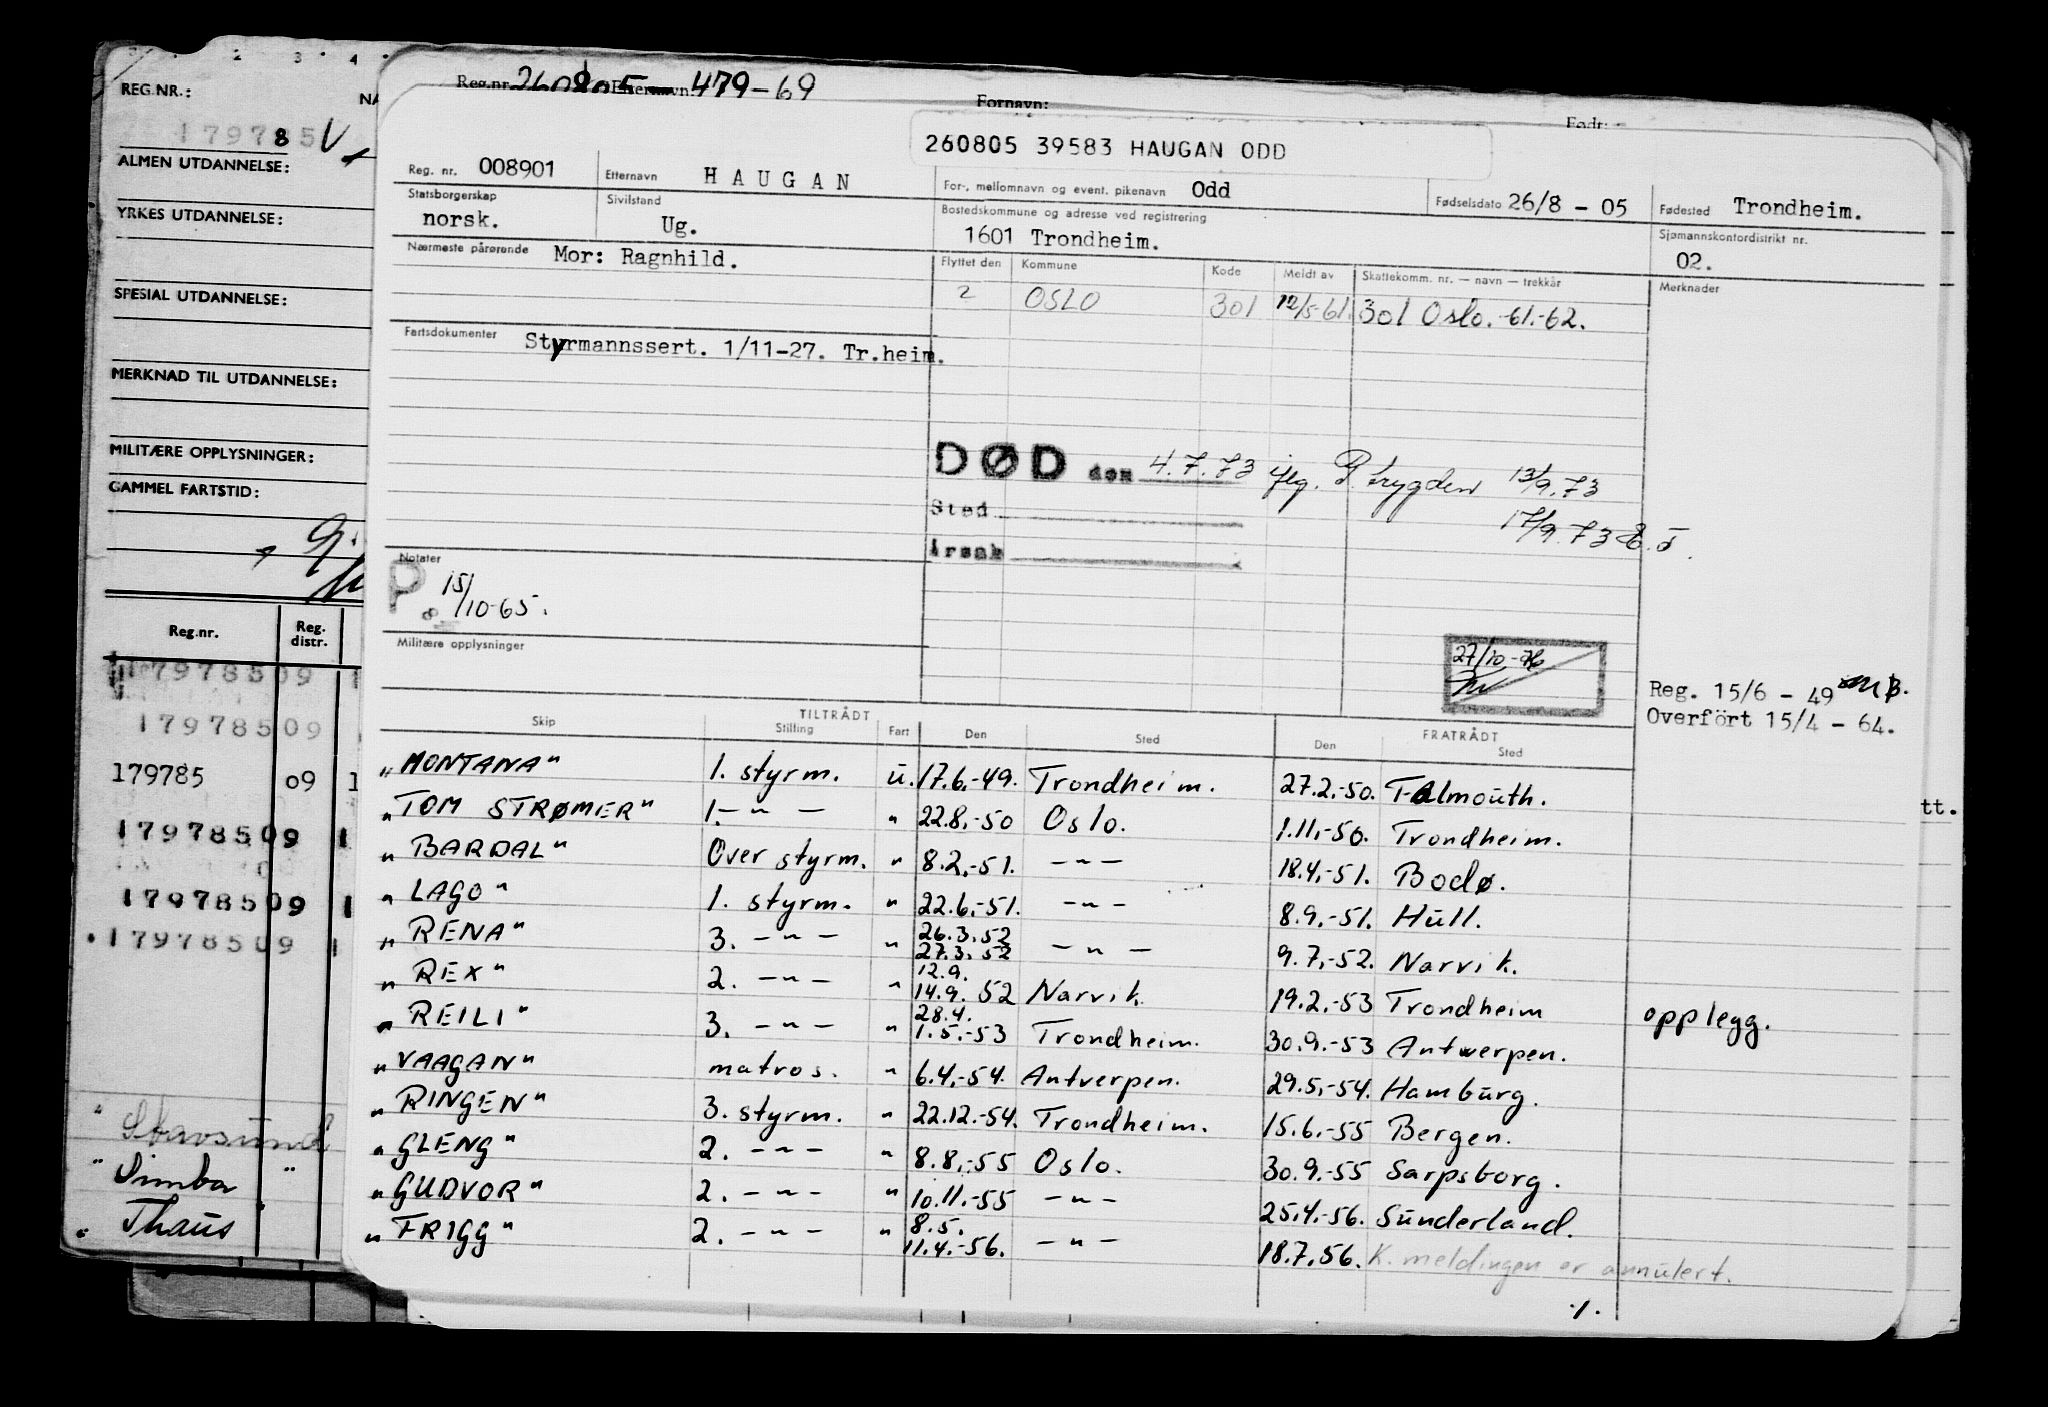 2 3 4
REG.NR.:
179785
ALMEN UTDANNELSE:
YRKES UTDANNELSE:
SPESIAL UTDANNELSE:
MERKNAD TIL UTDANNELSE:
MILITÆRE OPPLYSNINGER:
GAMMEL FARTSTID:
Reg.nr. Reg. distr.
179785 09
179785 09
179785 09
179785 09
179785 09
179785 09
" Stavsund
" Simba "
" Thaus "
Reg.nr. 260805 Etternavn: 479-69 Fornavn: Født:
260805 39583 HAUGAN ODD
Reg. nr. 008901 Etternavn HAUGAN For-, mellomnavn og event. pikenavn Odd Fødselsdato 26/8 - 05 Fødested Trondheim.
Statsborgerskap norsk. Sivilstand Ug. Bostedskommune og adresse ved registrering 1601 Trondheim. Sjømannskontordistrikt nr. 02.
Nærmeste pårørende Mor: Ragnhild. Flyttet den Kommune Kode Meldt av Skattekomm. nr. — navn — trekkår Merknader
2 OSLO 301 12/5-61. 301 Oslo. -61.-62.
Fartsdokumenter Styrmannssert. 1/11-27. Tr.heim.
DØD den 4.7.73 iflg. P.trygden 13/9.73
Sted 17/9.73
Årsak
Notater
P. 15/10-65.
Militære opplysninger
27/10-76
Reg. 15/6 - 49
Overført 15/4 - 64.
TILTRÅDT FRATRÅDT
Skip Stilling Fart Den Sted Den Sted
"MONTANA" 1. styrm. u. 17.6.-49. Trondheim. 27.2.-50. Falmouth.
"TOM STRØMER" 1. -"- " 22.8.-50 Oslo. 1.11.-50. Trondheim.
"BARDAL" Over styrm. " 8.2.-51. -"- 18.4.-51. Bodø.
"LAGO" 1. styrm. " 22.6.-51. -"- 8.9.-51. Hull.
"RENA" 3. -"- " 26.3.52 27.3.52 -"- 9.7.-52. Narvik.
"REX" 2. -"- " 12.9. 14.9. 52 Narvik 19.2.-53 Trondheim opplegg.
"REILI" 3. -"- " 28.4. 1.5.-53 Trondheim. 30.9.-53 Antwerpen.
"VAAGAN" matros. " 6.4.-54. Antverpen. 29.5.-54. Hamburg.
"RINGEN" 3. styrm. " 22.12.-54. Trondheim. 15.6.-55 Bergen.
"GLENG" 2. -"- " 8.8.-55 Oslo. 30.9.-55 Sarpsborg.
"GUDVOR" 2. -"- " 10.11.-55 -"- 25.4.-56. Sunderland.
"FRIGG" 2. -"- " 8.5. 11.4.-56. -"- 18.7.56. K. meldingen er annulert.
·/.
tt.